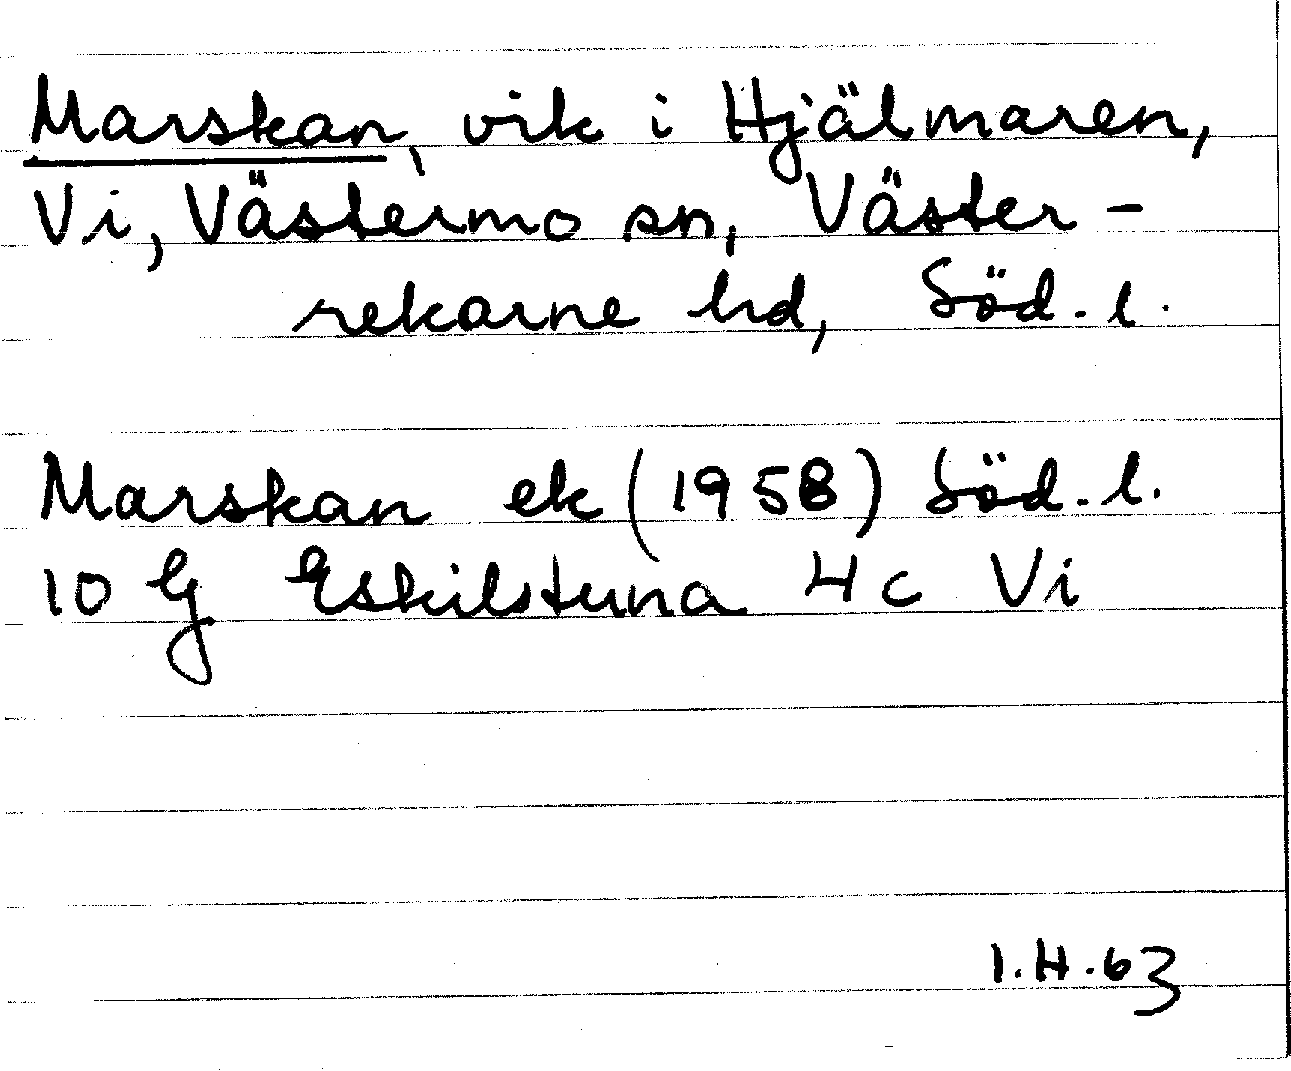 Marskan, vik i Hjälmaren,
Vi, Västermo sn, Väster-
rekarne hd, Söd. l.
Marskan ek (1958) Söd. l.
10 G Eskilstuna 4c Vi
I.H.63